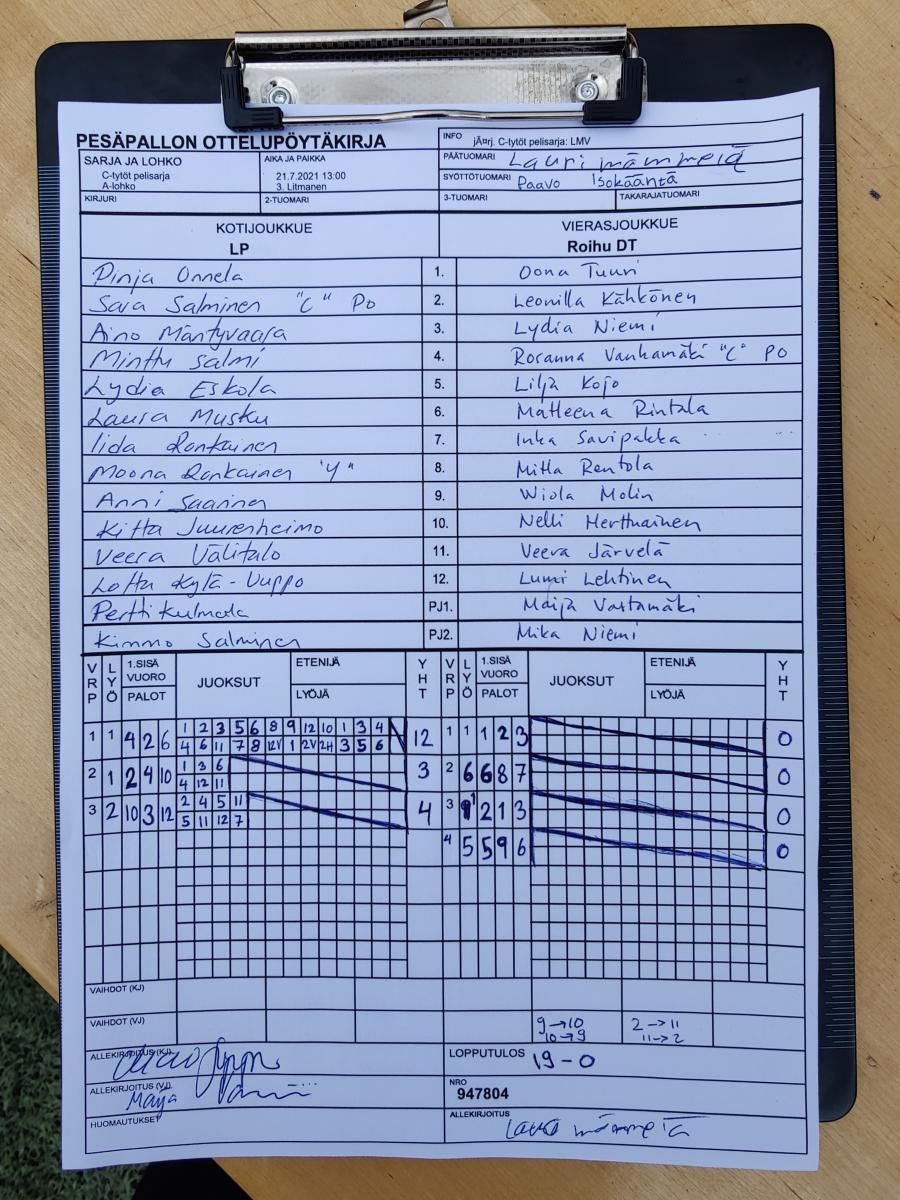 PESÄPALLON OTTELUPÖYTÄKIRJA
INFO jÃ¤rj. C-tytöt pelisarja: LMV
SARJA JA LOHKO
C-tytöt pelisarja
A-lohko
AIKA JA PAIKKA
21.7.2021 13:00
3. Litmanen
PÄÄTUOMARI Lauri mämmelä
SYÖTTÖTUOMARI Paavo Isokääntä
KIRJURI 2-TUOMARI 3-TUOMARI TAKARAJATUOMARI
KOTIJOUKKUE VIERASJOUKKUE
LP Roihu DT
Pinja Onnela 1. Oona Tuuri
Sara Salminen "C" Po 2. Leonilla Kähkönen
Aino Mäntyvaara 3. Lydia Niemi
Minttu Salmi 4. Rosanna Vanhamäki "C" PO
Lydia Eskola 5. Lilja Kojo
Laura Musku 6. Matleena Rintala
Iida Ronkainen 7. Inka Savipakka
Moona Ronkainen "V" 8. Milla Rentola
Anni Saarinen 9. Wiola Molin
Kitta Juurenheimo 10. Nelli Herttuainen
Veera Välitalo 11. Veera Järvelä
Lotta Kylä-Uuppo 12. Lumi Lehtinen
Pertti Kulmala PJ1. Maija Vastamäki
Kimmo Salminen PJ2. Mika Niemi
VRP LYÖ 1.SISÄ VUORO PALOT JUOKSUT ETENIJÄ LYÖJÄ YHT VRP LYÖ 1.SISÄ VUORO PALOT JUOKSUT ETENIJÄ LYÖJÄ YHT
1 1 4 2 6 1 2 3 5 6 8 9 12 10 1 3 4 12 1 1 1 2 3 0
4 6 11 7 8 12V 1 2V 2H 3 5 6
2 1 2 4 10 1 3 6 3 2 6 6 8 7 0
4 12 11
3 2 10 3 12 2 4 5 11 4 3 1 2 1 3 0
5 11 12 7
4 5 5 9 6 0
VAIHDOT (KJ)
VAIHDOT (VJ) 9→10 2→11
10→9 11→2
ALLEKIRJOITUS (KJ) LOPPUTULOS 19-0
ALLEKIRJOITUS (VJ) Maija
NRO
947804
HUOMAUTUKSET ALLEKIRJOITUS Lauri mämmelä